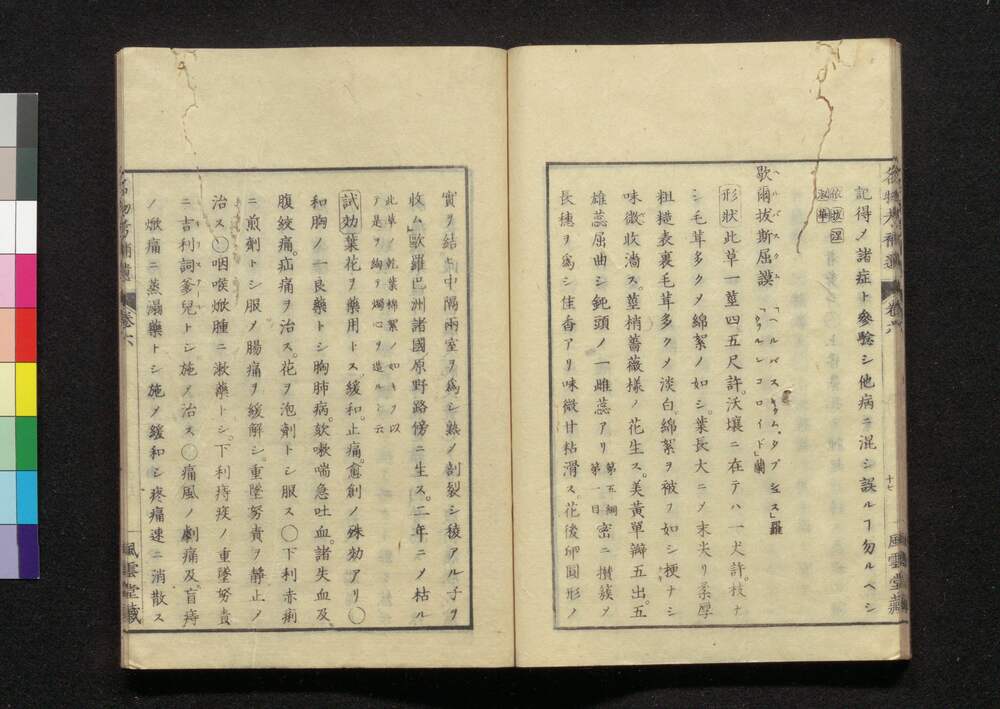 記得ノ諸症ト参騐シ他病ニ混シ誤ルヿ勿ルヘシ
依拔涅
淑華
歇爾抜斯屈謨
ヘルバスクユム
「ヘルバスキュム、タプシュス」羅
「ウヲルンコロイド」蘭
形狀 此草一莖四五尺許。沃壤ニ在テハ一丈許。枝ナ
シ毛茸多クメ綿絮ノ如シ。葉長大ニメ末尖リ柔厚
粗糙表裏毛茸多クメ淡白。綿絮ヲ被フ如シ梗ナシ
味微收澁ス。莖梢薔薇様ノ花生ス。美黄單瓣五出。五
雄蕊屈曲シ鈍頭ノ一雌蕊アリ 第五綱第一目 密ニ攅簇メ
長穗ヲ爲シ佳香アリ味微甘粘滑ス。花後卵圓形ノ
十七
風雲堂藏
實ヲ結ヒ中隔兩室ヲ爲シ熟メ剖裂シ稜アル子ヲ
收ム」歐羅巴洲諸國原野路傍ニ生ス。二年ニメ枯ル
此草ノ乾葉綿絮ノ如キヲ以
テ是ヲ絢ヲ燭心ヲ造ルト云
試効 葉花ヲ藥用トス。緩和。止痛。愈創ノ殊効アリ〇
和胸ノ一良藥トシ胸肺病。欬嗽喘急吐血。諸失血及
腹絞痛。疝痛ヲ治ス。花ヲ泡劑トシ服ス〇下利赤痢
ニ煎劑トシ服メ腸痛ヲ緩解シ。重墜努責ヲ靜止メ
治ス〇咽喉焮腫ニ漱藥トシ。下利痔疾ノ重墜努責
ニ吉利詞爹兒トシ施メ治ス〇痛風ノ劇痛及。盲痔
ノ焮痛ニ蒸溻藥トシ施メ緩和シ疼痛速ニ消散ス
卷六
風雲堂藏